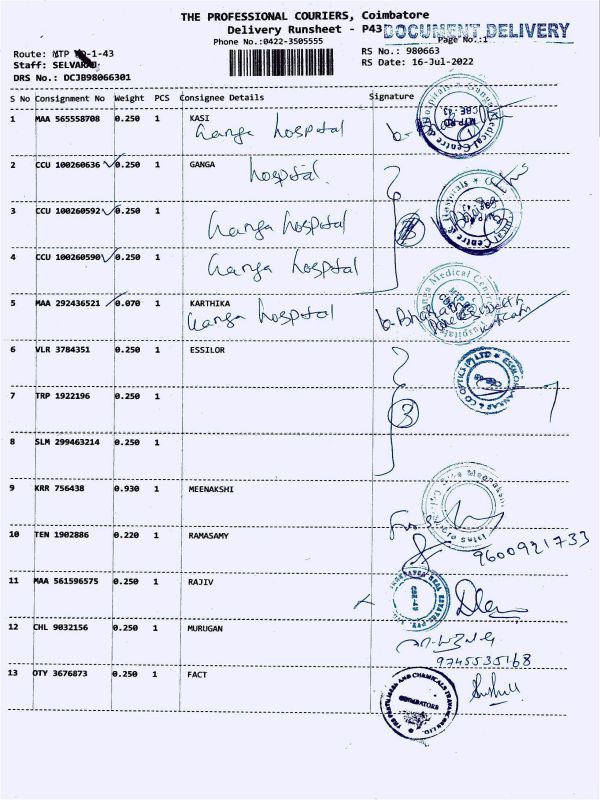 THE PROFESSIONAL COURIERS, Coimbatore
Delivery Runsheet - P43
DOCUMENT DELIVERY
Phone No.:0422-3505555
Page No.:1
Route: MTP RD-1-43
RS No.: 980663
Staff: SELVARAJ
RS Date: 16-Jul-2022
DRS No.: DCJB98066301
S No Consignment No Weight PCS Consignee Details Signature
1 MAA 565558708 0.250 1 KASI
Ganga hospital
2 CCU 100260636 0.250 1 GANGA
hospital
3 CCU 100260592 0.250 1
Ganga hospital
4 CCU 100260590 0.250 1
Ganga hospital
5 MAA 292436521 0.070 1 KARTHIKA
Ganga hospital
6 VLR 3784351 0.250 1 ESSILOR
7 TRP 1922196 0.250 1
3
8 SLM 299463214 0.250 1
9 KRR 756438 0.930 1 MEENAKSHI
10 TEN 1902886 0.220 1 RAMASAMY
9600921733
11 MAA 561596575 0.250 1 RAJIV
12 CHL 9032156 0.250 1 MURUGAN
9745535168
13 OTY 3676873 0.250 1 FACT
COIMBATORE